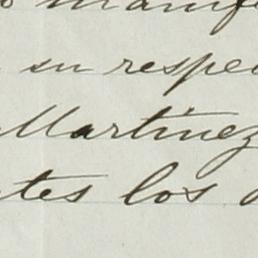 o manif
su respec
Martinez
tes los